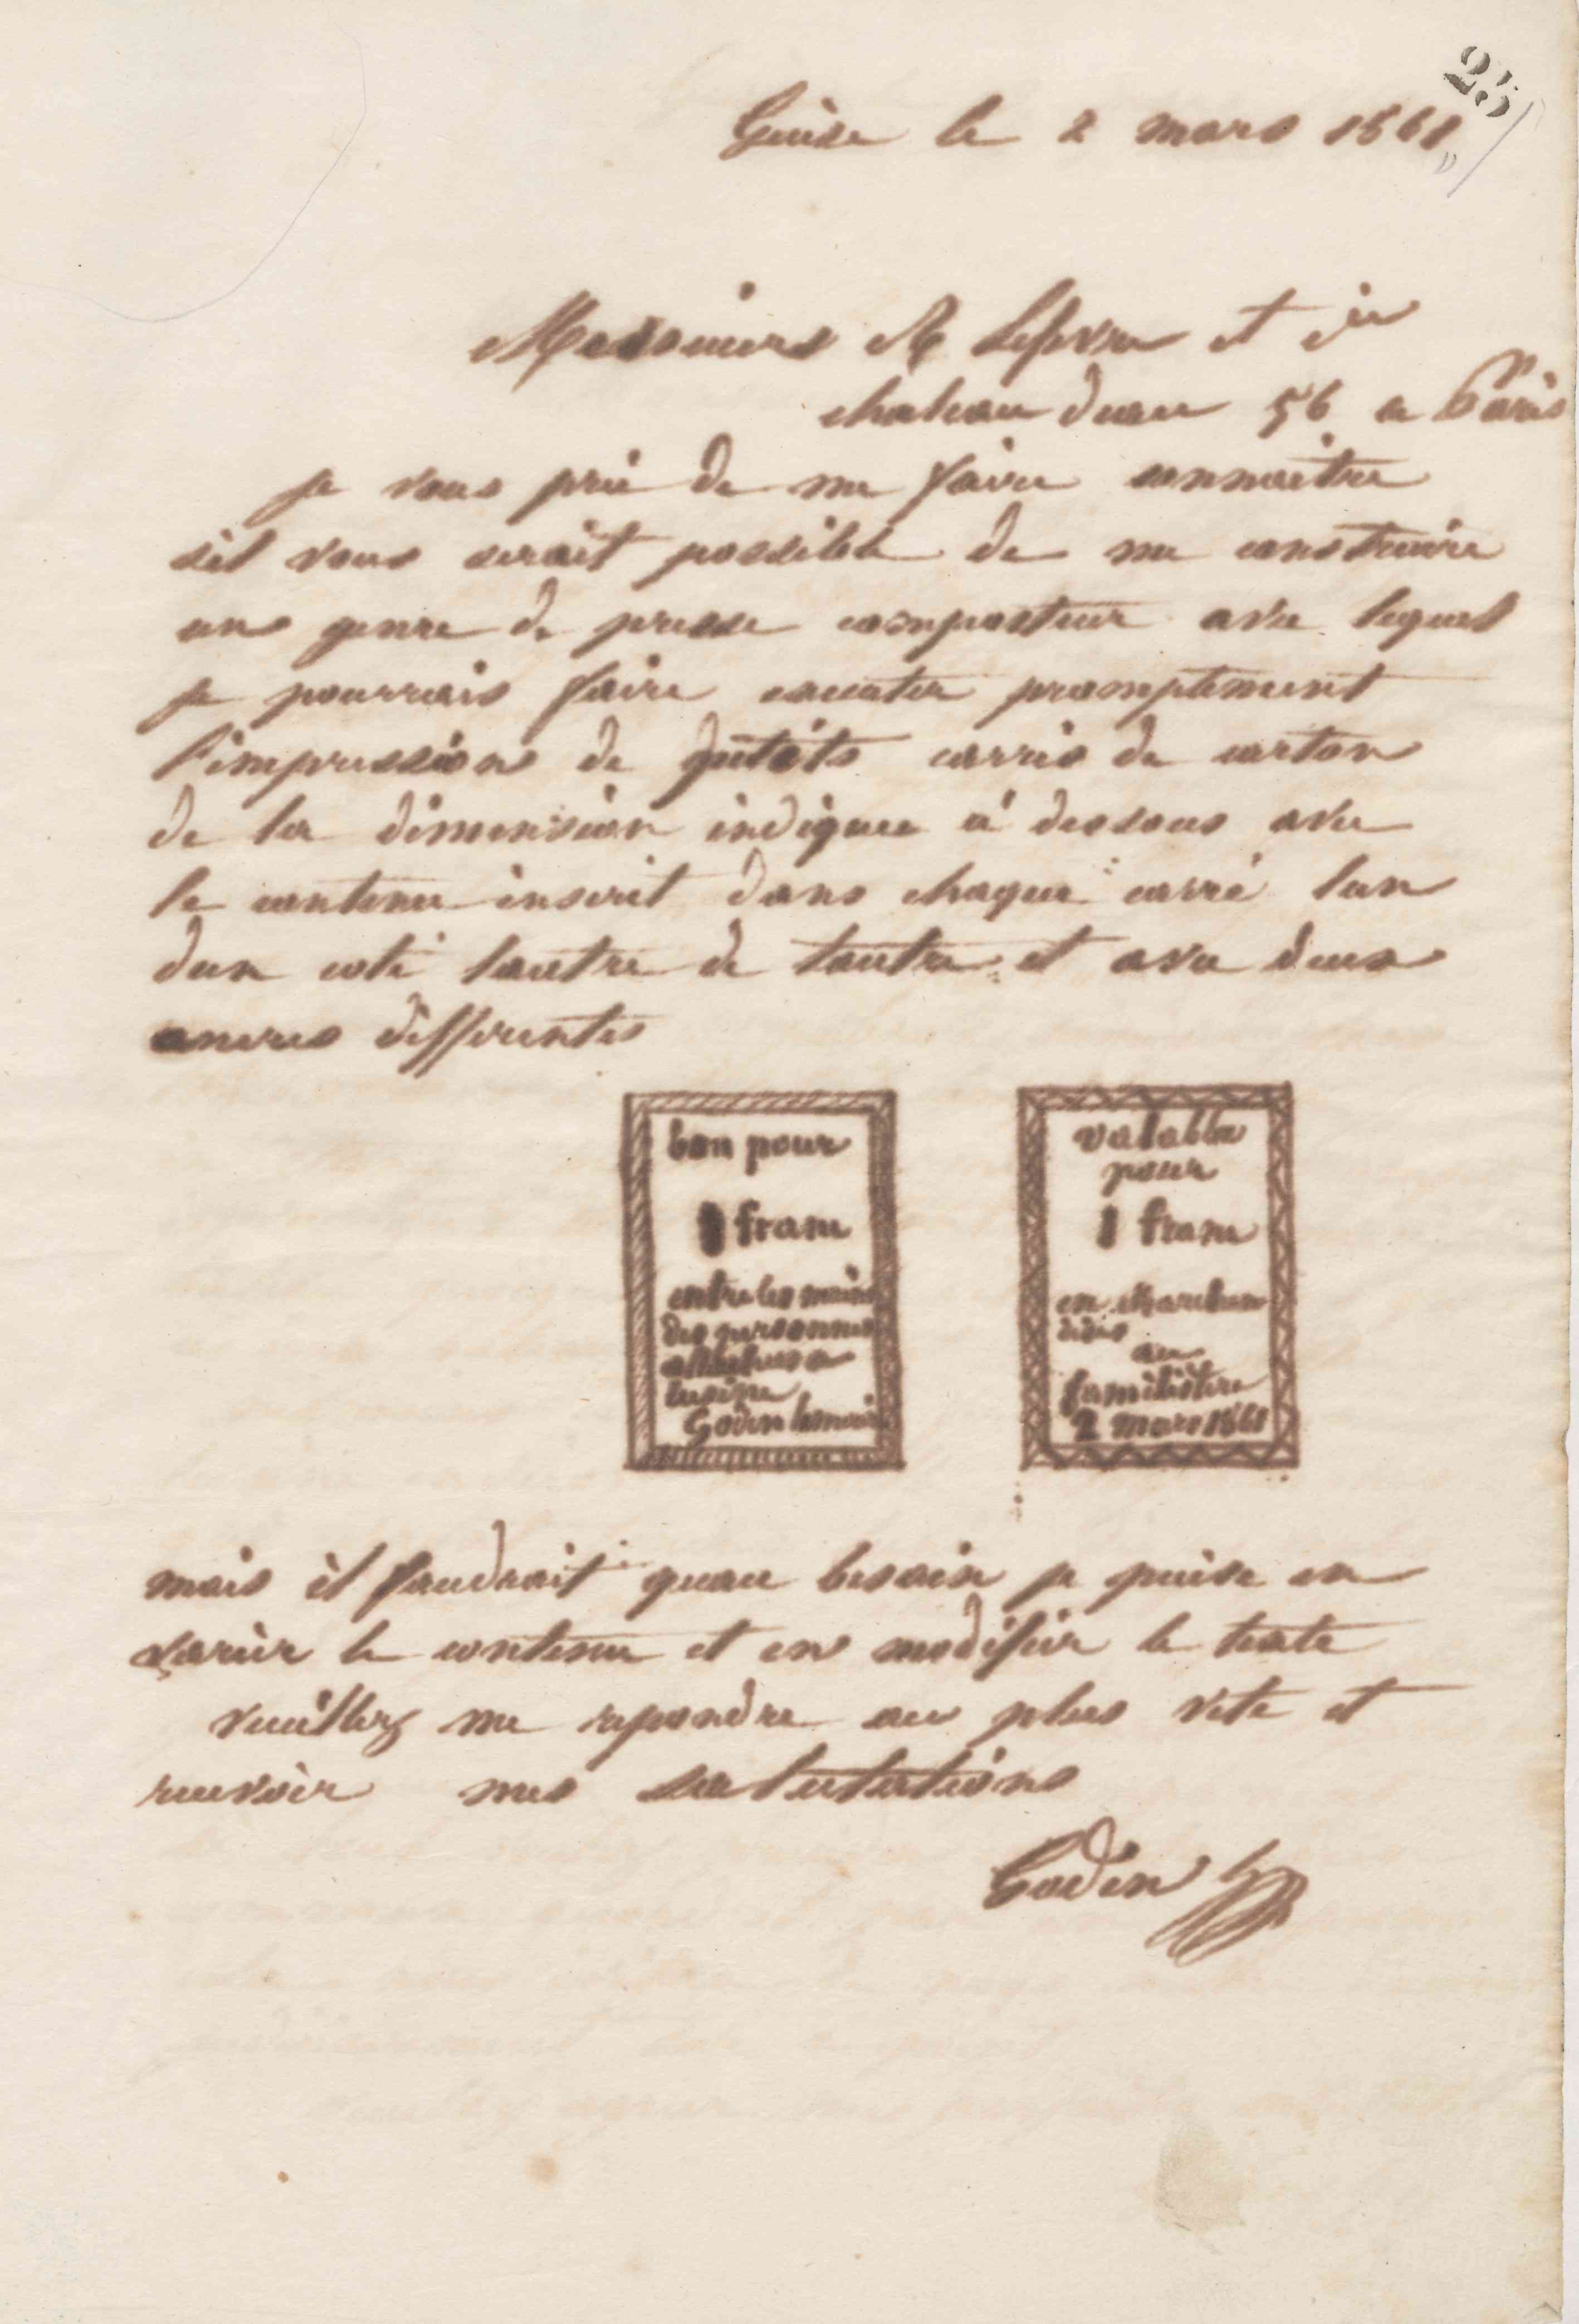 25
Guise le 2 mars 1861
Messieurs Lefevre et cie
chateau deau 56 a Paris
je vous prie de me faire connaitre
sil vous serait possible de me construire
un genre de presse composteur avec lequel
je pourrais faire executer promptement
l'impression de petits carrés de carton
de la dimension indiquee ci dessous avec
le contenu inscrit dans chaque carré lun
dun coté lautre de lautre et avec deux
encres differentes
bon pour
1 franc
entre les mains
des personnes
attachees a
lusine
Godin lemaire
valable
pour
1 franc
en marchan
dises
au
familistere
2 mars 1861
mais il faudrait quau besoin je puise en
varier le contenu et en modifier le texte
veuillez me repondre au plus vite et
recevoir mes salutations
Godin